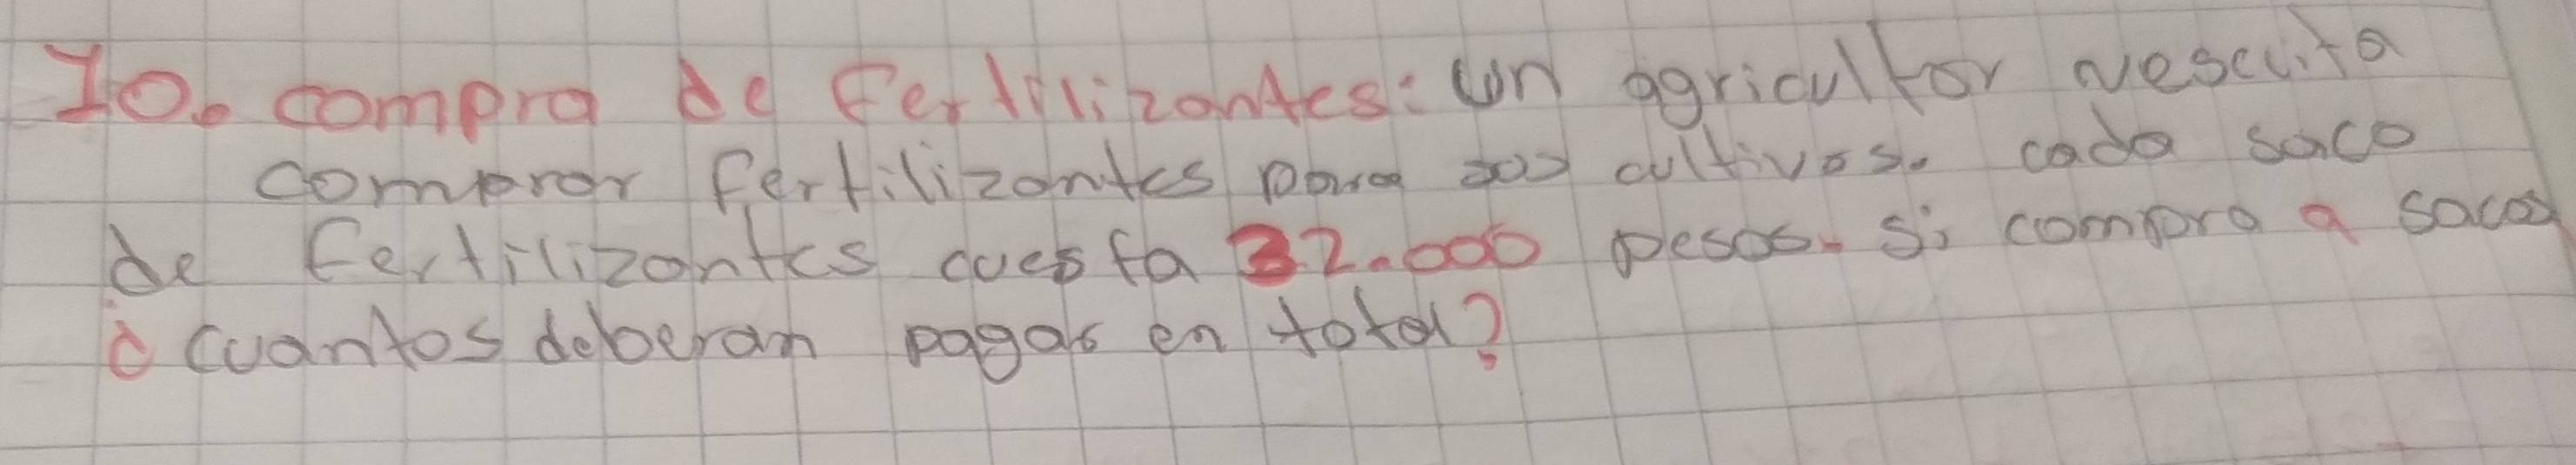 10. compra de fertilizantes: un agricultor nescita
comprar fertilizantes para sus cultivos. cada saco
de fertilizantes cuesta 32.000 pesos. si compra 9 sacos
¿cuantos deberan pagar en total?